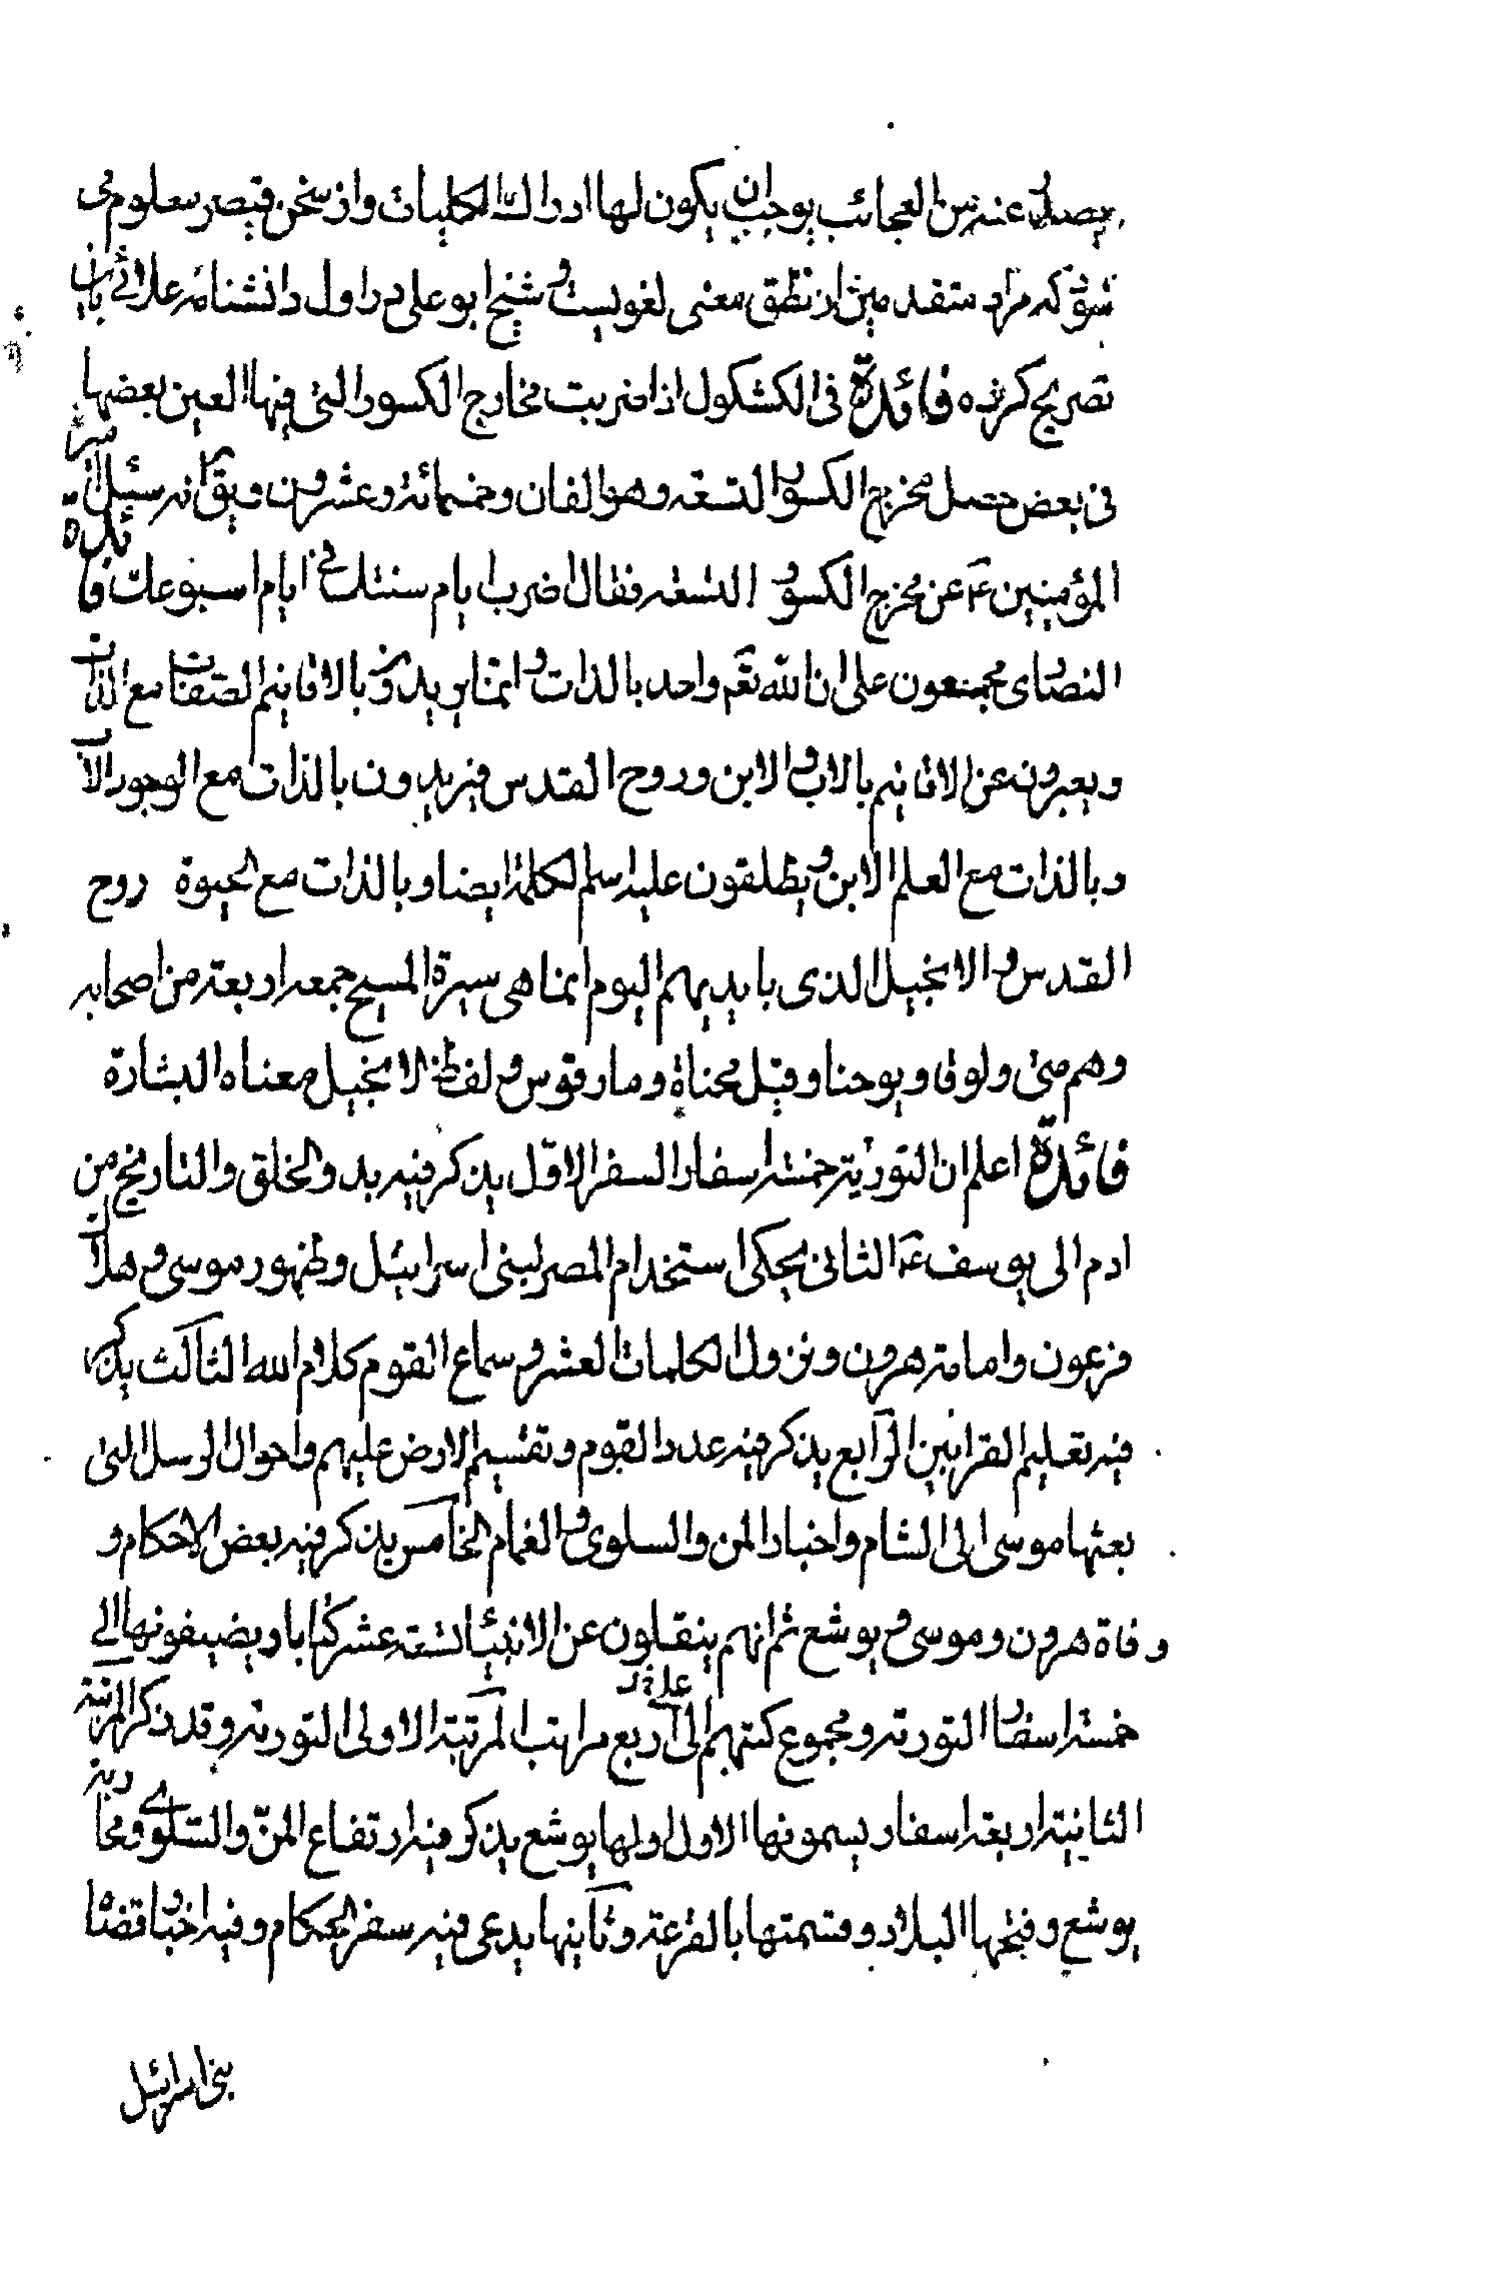 يصدر عنه من العجائب يوجب ان يكون لها ادراك الكليات و از سخن قيصر معلوم مى
شود كه مراد متقدمين از نطق معنى لغويست و شيخ ابو على در اول دانشنامه علائى باين
تصريح كرده فائدة فى الكشكول اذا ضربت مخارج الكسور التى فيها العين بعضها
فى بعض حصل مخرج الكسور التسعه و هو الفان و خمسمائة و عشرون و يق انه سئل امير
المؤمنين ع عن مخرج الكسور التسعه فقال اضرب ايام سنتك فى ايام اسبوعك فائدة
النصارى مجمعون على ان الله تعم واحد بالذات و يريدون بالاقانيم الصفات مع الذات
و يعبرون عن الاقانيم بالاب و الابن و روح القدس فيريدون بالذات مع الوجود الاب
و بالذات مع العلم الابن و يطلقون عليه اسم الكلمة ايضا و بالذات مع الحيوة روح
القدس و الانجيل الذى بايديهم اليوم انما هى سيرة المسيح جمعه اربعة من اصحابه
و هم متى و لوقا و يوحنا و قيل يحناة و مارقوس و لفظ الانجيل معناه البشارة
فائدة اعلم ان التورية خمسة اسفار السفر الاول يذكر فيه بدو الخلق و التاريخ من
ادم الى يوسف ع الثانى يحكى استخدام المصر لبنى اسرائيل و ظهور موسى و هلاك
فرعون و امامة هرون و نزول الكلمات العشر و سماع القوم كلام الله الثالث يذكر
فيه تعليم القرابين الرابع يذكر فيه عدد القوم و تقسيم الارض عليهم و احوال الرسل التى
بعثها موسى الى الشام و اخبار المن و السلوى و الغمام الخامس يذكر فيه بعض الاحكام و
وفاة هرون و موسى و يوشع ثم انهم ينقلون عن الانبياء تسعة عشر كتابا و يضيفونها الى
خمسة اسفار التورية و مجموع كتبهم على اربع مراتب المرتبة الاولى التورية و قد ذكر المرتبة
الثانية اربعة اسفار يسمونها الاول اولها يوشع يذكر فيه ارتفاع المنّ و السّلوى و محاربة
يوشع و فتحها البلاد و قسمتها بالقرعة و ثانيها يدعى فيه سفر الحكام و فيه اخبار قضاة
بنى اسرائيل